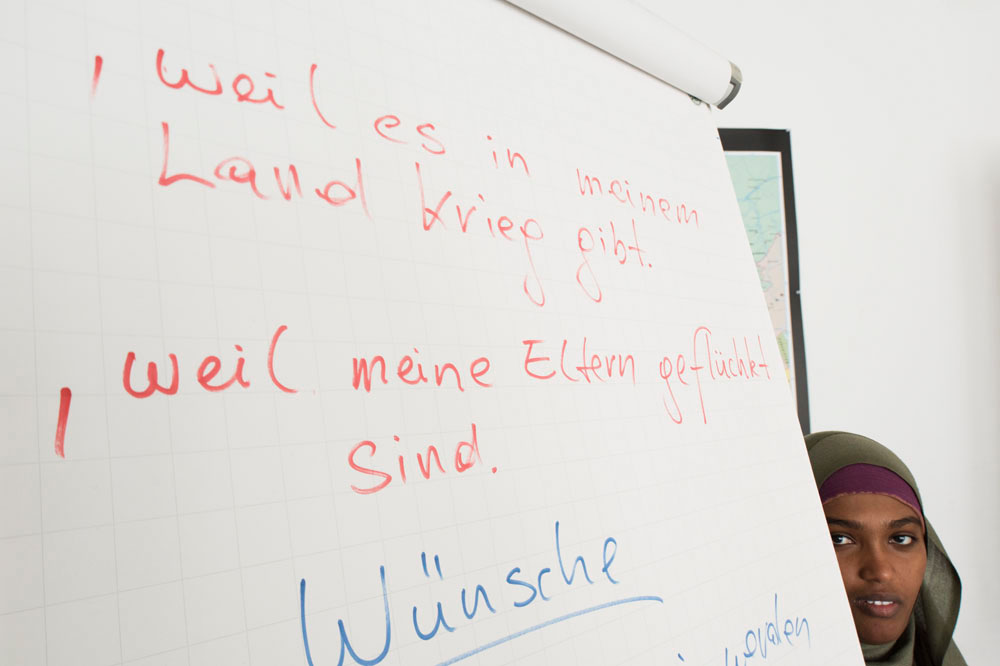 , weil es in meinem
Land Krieg gibt.
, weil meine Eltern geflüchtet
sind.
Wünsche
werden